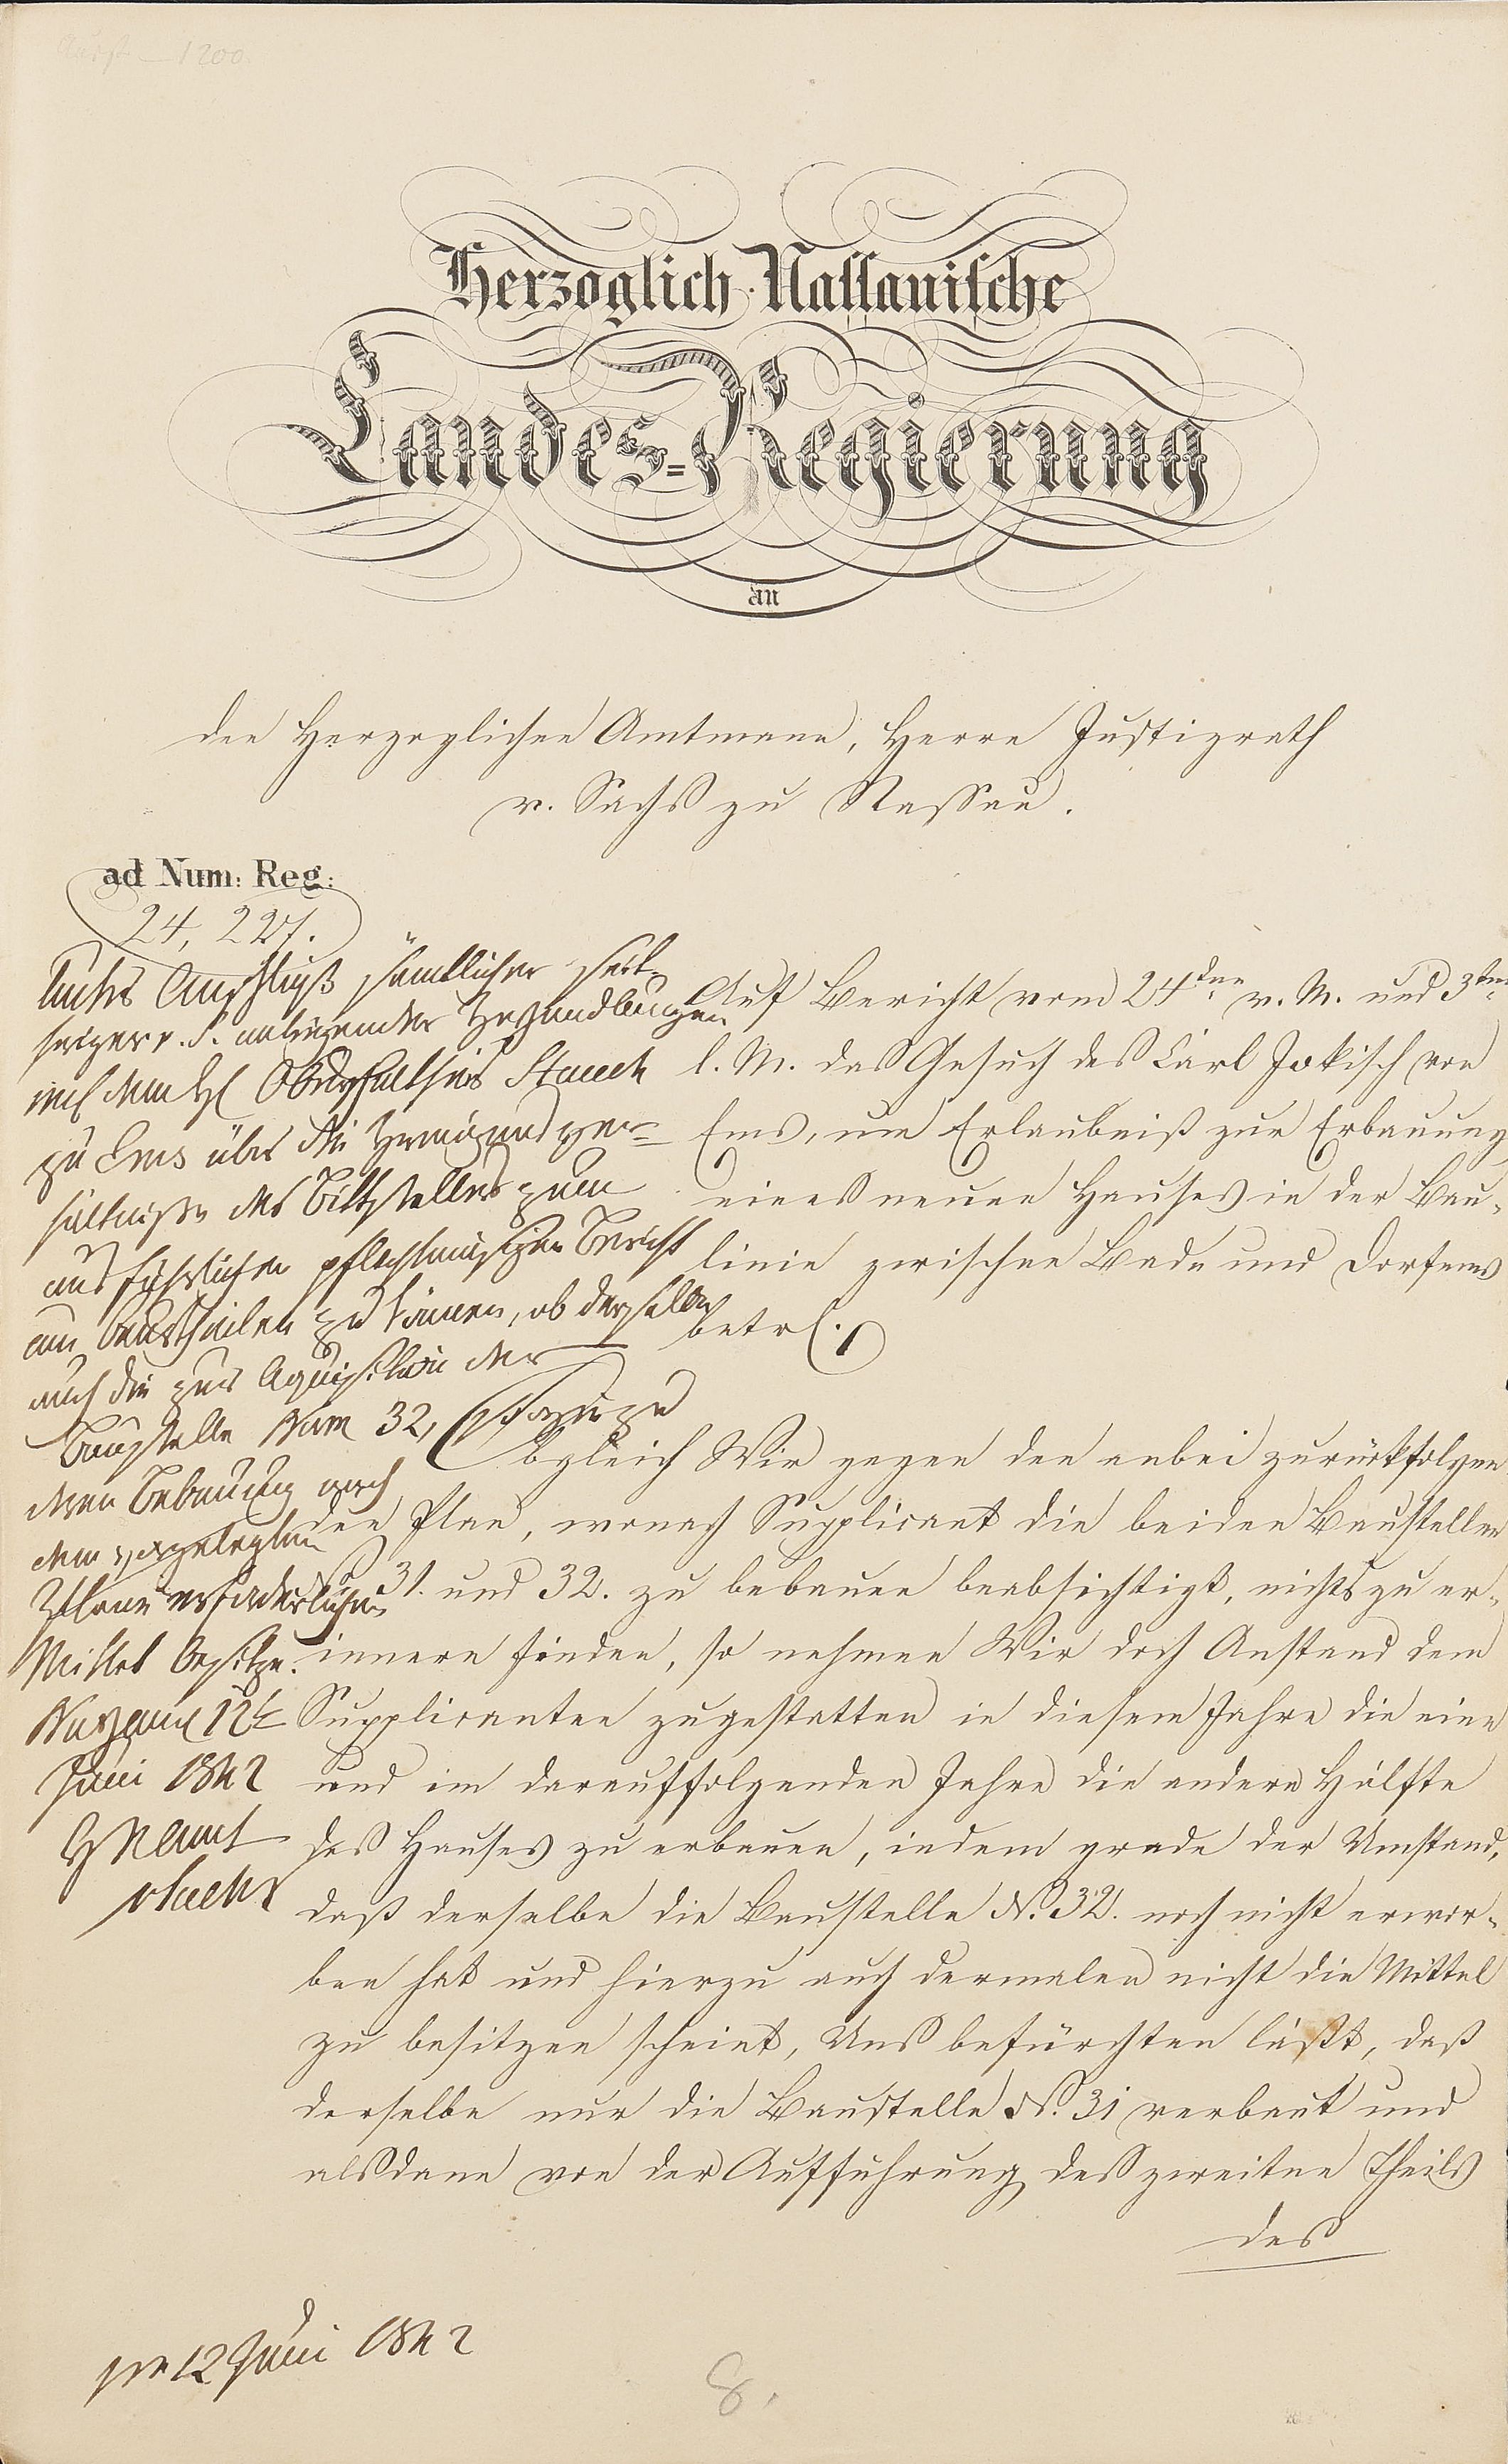 Herzoglich Nassauische
Landes-Regierung
an
den Herzoglichen Amtmann, Herrn Justizrath
v. Sachs zu Nassau.
ad Num: Reg:
24, 227.
Auf Bericht vom 24ten v. M. und 3ten
l. M. das Gesuch des Carl Jokisch von
Ems, um Erlaubniß zur Erbauung
eines neuen Hauses in der Bau-
linie zwischen Bad- und Dorfems
betr.
Obgleich Wir gegen den anbei zurückfolgen
den Plan, wonach Supplicant die beiden Baustellen
31. und 32. zu bebauen beabsichtigt, nichts zu er-
innern finden, so nehmen Wir doch Anstand dem
Supplicanten zugestatten in diesem Jahre die eine
und im darauffolgenden Jahre die andere Hälfte
des Hauses zu erbauen, indem grade der Umstand,
daß derselbe die Baustelle No. 32. noch nicht erwor-
ben hat und hierzu auch dermalen nicht die Mittel
zu besitzen scheint, Uns befürchten läßt, daß
derselbe nur die Baustelle No. 31 verbaut und
alsdann von der Aufführung des zweiten Theils
des
unter Anschluß sämtlicher seit-
heriger Verhandlungen
zu Ems über die Vermögensver-
hältnisse des Bittstellers zum
ausführlichen pflichtmäsigen Bericht
um beurtheilen zu können, ob derselbe
auch die zur Aquisition der
Baustelle Num 32,
deren Bebauung nach
dem vorgelegten
Plane erforderlichen
Mittel besitze.
Nassau 12t
Juni 1842
HNAmt
vSachs
pr 12 Juni 1842
8.